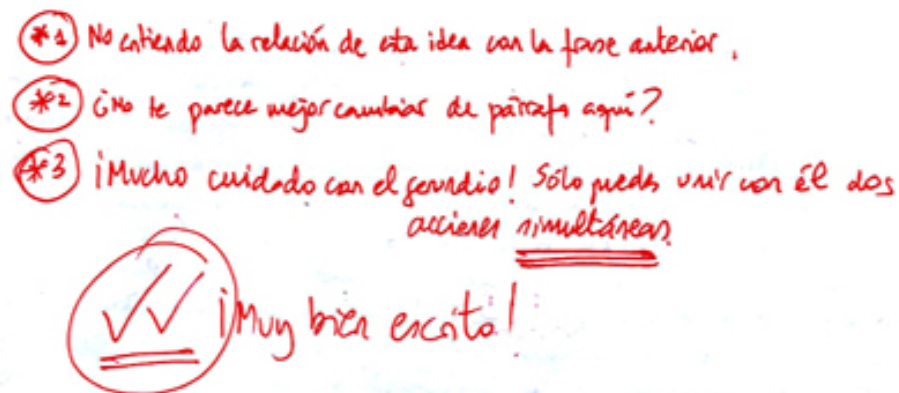 *1 No entiendo la relación de esta idea con la frase anterior.
*2 ¿No te parece mejor cambiar de párrafo aquí?
*3 ¡Mucho cuidado con el gerundio! Sólo puedes unir con él dos
acciones simultáneas.
¡Muy bien escrito!